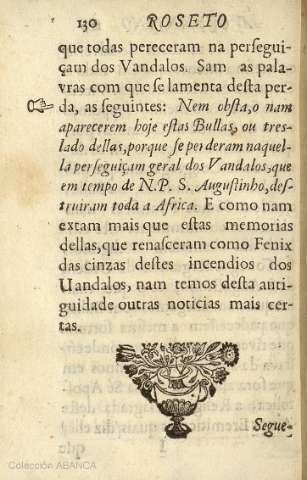 130 ROSETO
que todas pereceram na persegui-
çam dos Vandalos. Sam as pala-
vras com que se lamenta desta per-
da, as seguintes: Nem obsta, o nam
aparecerem hoje estas Bullas, ou tres-
lado dellas, porque se perderam naquel-
la perseguiçam geral dos Vandalos, que
em tempo de N. P. S. Augustinho, des-
truiram toda a Africa. E como nam
extam mais que estas memorias
dellas, que renasceram como Fenix
das cinzas destes incendios dos
Uandalos, nam temos desta anti-
guidade outras noticias mais cer-
tas.
Segue-
Colección ABANCA